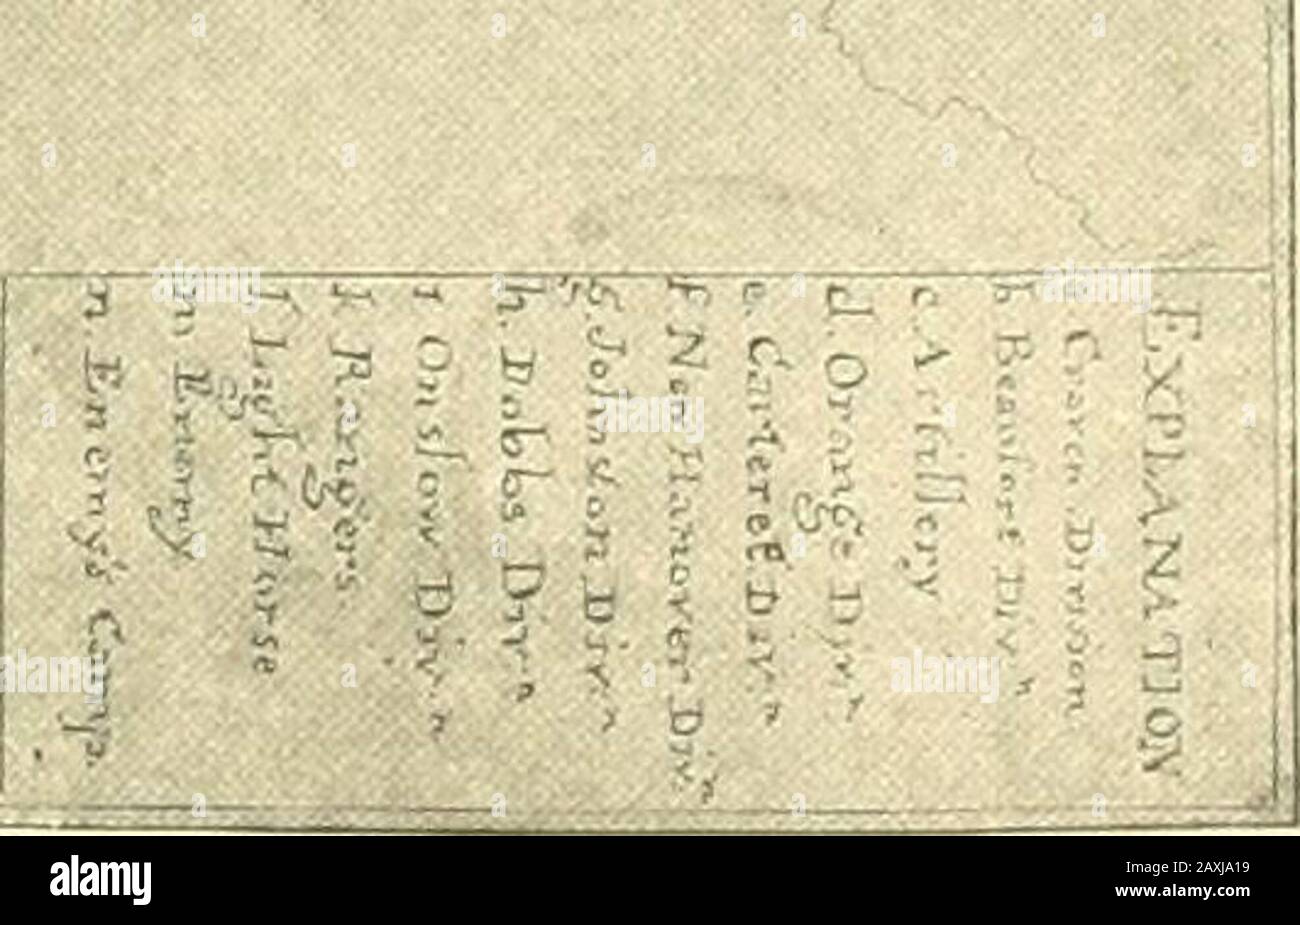 EXPLANATION
a Craven Division
b Beaufort Div.n
c. Artillery
d. Orange Div.n
e. Carteret Div.n
f New Hanover Div.n
g. Johnston Div.n
h. Dobbs Div.n
i Onslow Div.n
k Rangers.
l Light Horse
m Enemy
n. Enemy's Camp.
alamy
Image ID: 2AXJA19
www.alamy.com